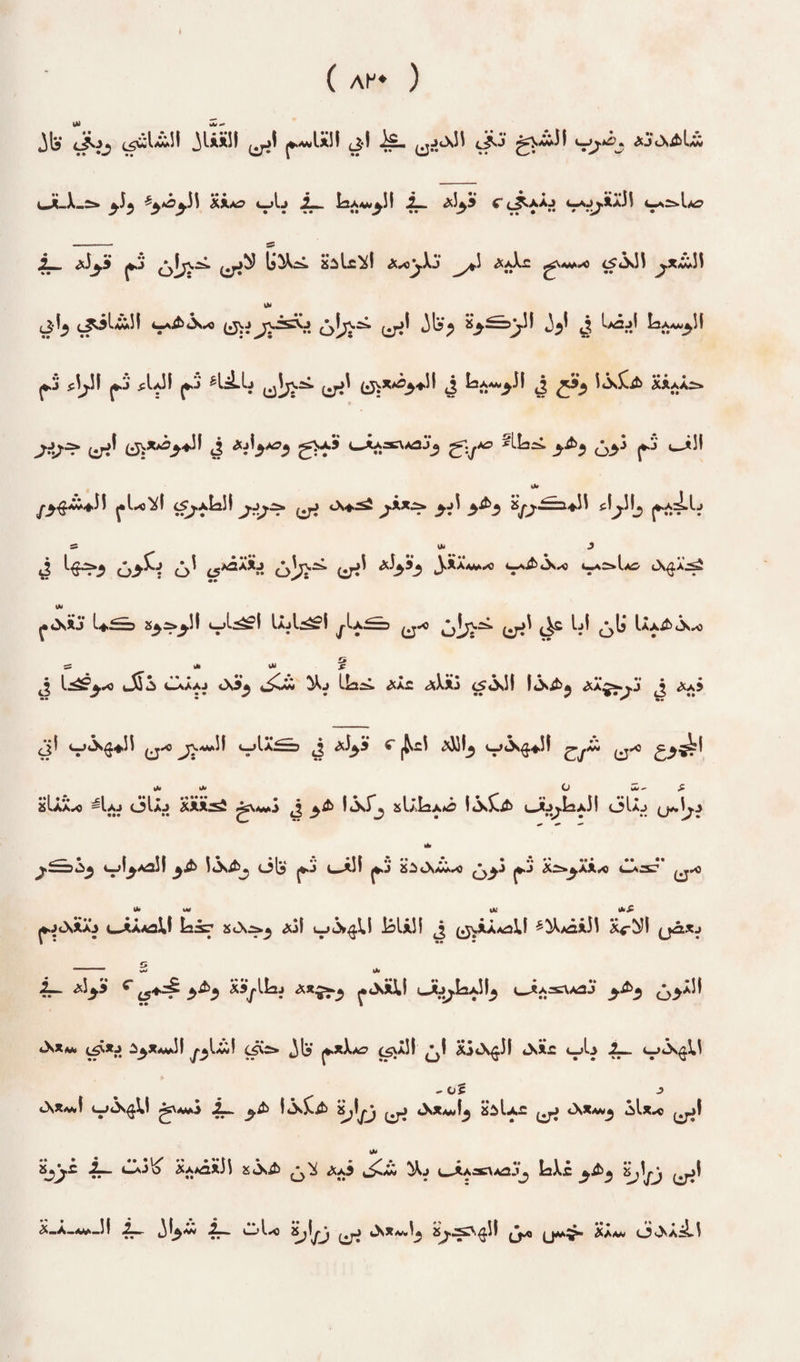 ( ٨٢٠ )
شاهدته وضرب الشيخ تقي الدين على ابي القاسم ابن القفّال الشاشي وبقّى قال
صاحب التقريب ينبغي ۞ قوله في الوسيط في باب صفة الوضوء ولو حلق
الشعر الذي مسح عليه لم تلزمه الاعادة خلافًا لابن خيران ثم قوله في
الوسيط ايضا في اول الزكوة وقال ابن خيران يتخيّر بين مذهب الشافعي وابي
حنيفة هكذا وقع في الوسيط في الموضعين ابن خيران بالخاء ثم الياء ثم الراء ثم
الف ثم نون وهو خطاءٌ صريح وتصحيف قبيح وصوابه في الموضعين ابن جرير
بالجيم والراء المكرّرة وهو ابو جعفر محمد بن جرير الطبري الامام المشهور
مُجتهد صاحب مذهب مستقلّ وقوله ابن خيران يقتضي ان يكون وجهًا في
مذهبنا فان ابا علي ابن خيران من كبار اصحابنا اصحاب الوجوه كما تقدّم
فيه في ترجمته وهذا الذي نقله عنه خطأ بلا شكّ وقد بيّنت ذلك موضحًا في
المجموع من شرح المهذب والله اعلم ۞ قوله في كتاب السير من المهذب اتى
براس ينّاق البطريق هكذا ضبطناه وكذا هو في نسخ محققة ينّاق بياء مثنّاة
من تحت مفتوحة ثم نون مشدّدة ثم الف ثم قاف وهذا هو الصواب وذكر
بعض الائمّة الفضلاء المصنّفين في الفاظ المهذب انه وجده بخط المصنّف بتقديم
النون وهو تصحيف والبطريق المقدّم وجمعه بطارقة وهو عجمي ۞ قوله في
المهذب في باب عقد الهدنة ان النبي صلعم قال حتى اشاور السعود يعني سعد
ابن معاذ وسعد بن عُبادة وأسعد بن زرارة هكذا هو في نسخ المهذب أسعد
ابن زرارة وهو غلط وتصحيف بلا شكّ فيه لان هذه القضية كانت في غزوة
الخندق سنة خمس من الهجرة واسعد بن زرارة مات في شوال في السنة